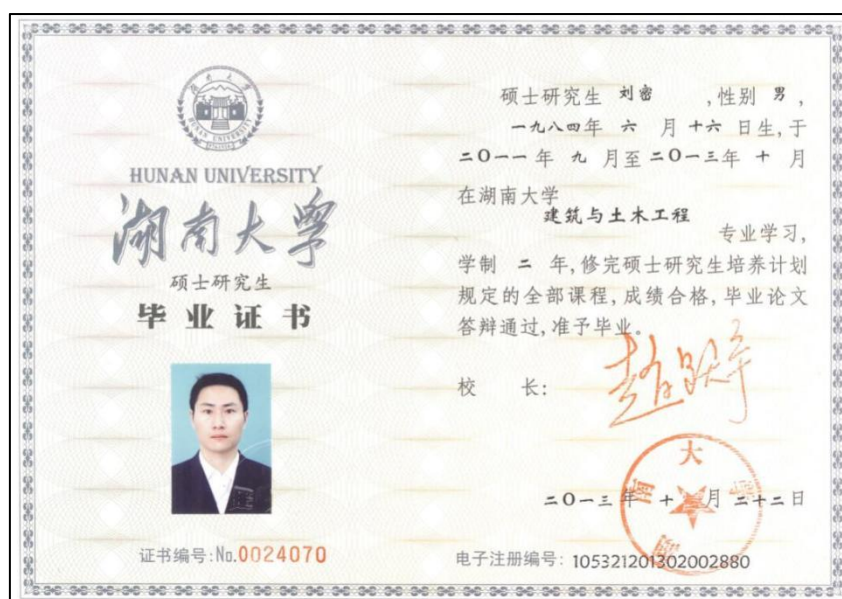 湖南大学
HUNAN UNIVERSITY
HUNAN UNIVERSITY
湖南大学
硕士研究生
毕业证书
证书编号:No.0024070
硕士研究生 刘密 ,性别 男,
一九八四年 六 月 十六 日生,于
二〇一一年 九 月至二〇一三年 十 月
在湖南大学
建筑与土木工程
专业学习,
学制 二 年,修完硕士研究生培养计划
规定的全部课程,成绩合格,毕业论文
答辩通过,准予毕业。
校 长:
赵跃宇
湖南大学
二〇一三年 十 月 二十二日
电子注册编号: 105321201302002880